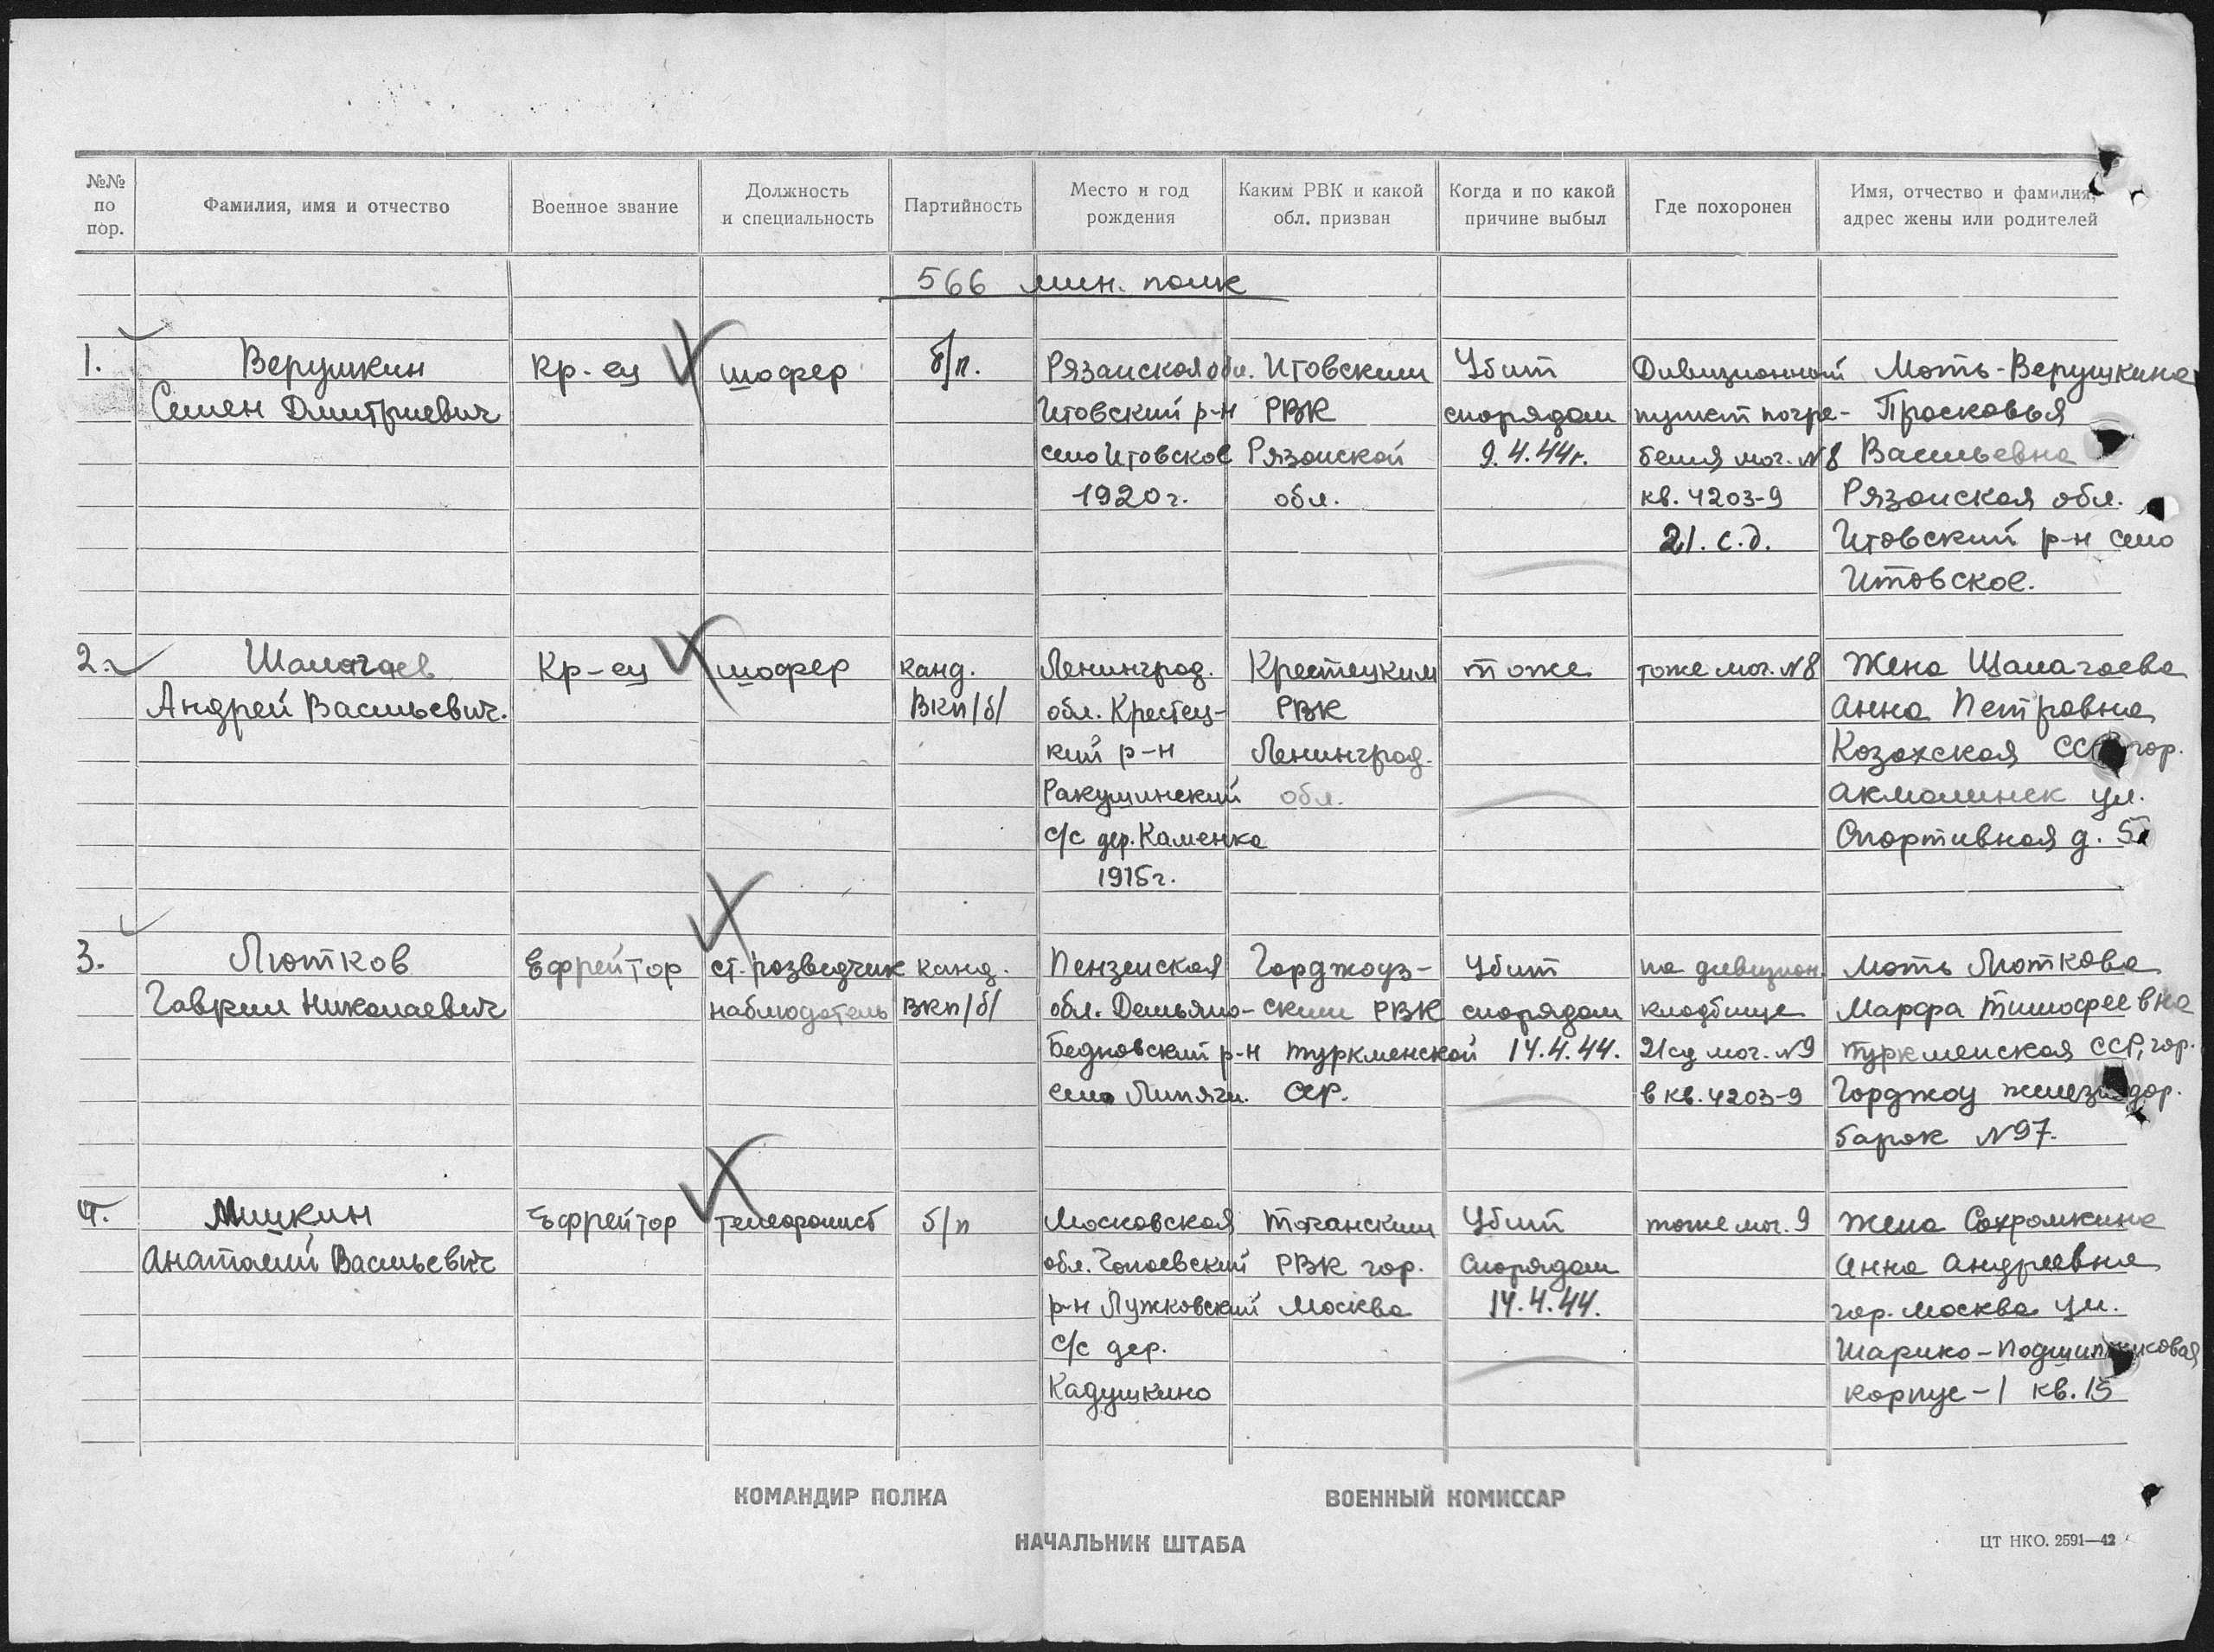 №№ по пор.
Фамилия, имя и отчество
Военное звание
Должность и специальность
Партийность
Место и год рождения
Каким РВК и какой обл. призван
Когда и по какой причине выбыл
Где похоронен
Имя, отчество и фамилия, адрес жены или родителей
566 мин. полк
1.
Верушкин
Семен Дмитриевич
Кр-ец
шофер
б/п.
Рязанская обл.
Итовский р-н
село Итовское
1920г.
Итовским
РВК
Рязанской
обл.
Убит
снорядом
9.4.44г.
Дивизионный
пункт погре-
бения мог. №8
кв. 4203-9
21. с.д.
Мать-Верушкина
Просковья
Васильевна
Рязанская обл.
Итовский р-н село
Итовское.
2.
Шамагаев
Андрей Васильевич.
Кр-ец
шофер
канд.
ВКП/б/
Ленинград.
обл. Крестец-
кий р-н
Ракушинский
с/с дер. Каменка
1915г.
Крестецким
РВК
Ленинград.
обл.
тоже
тоже мог. №8
Жена Шамагаева
Анна Петровна
Козахская ССР гор.
Акмолинск ул.
Спортивная д. 5
3.
Лютков
Гаврил Николаевич
Ефрейтор
ст. розведчик
наблюдатель
канд.
ВКП/б/
Пензенская
обл. Демьяно-
Бедновский р-н
село Липяги.
Чарджоуз-
ским РВК
Туркменской
ССР.
Убит
снорядом
14.4.44.
на дивизион.
кладбище
21сд мог. №9
в кв. 4203-9
Мать Люткова
Марфа Тимофеевна
Туркменская ССР, гор.
Чарджоу железнодор.
барак №97.
4.
Мишкин
Анатолий Васильевич
Ефрейтор
телефонист
б/п
Московская
обл. Чопаевский
р-н Лужковский
с/с дер.
Кадушкино
Таганским
РВК гор.
Москва
Убит
Снорядом
14.4.44.
тоже мог. 9
Жена Сохромкина
Анна Андреевна
гор. Москва ул.
Шарико-Подшипниковая
корпус-1 кв. 15
КОМАНДИР ПОЛКА
ВОЕННЫЙ КОМИССАР
НАЧАЛЬНИК ШТАБА
ЦТ НКО. 2591—42